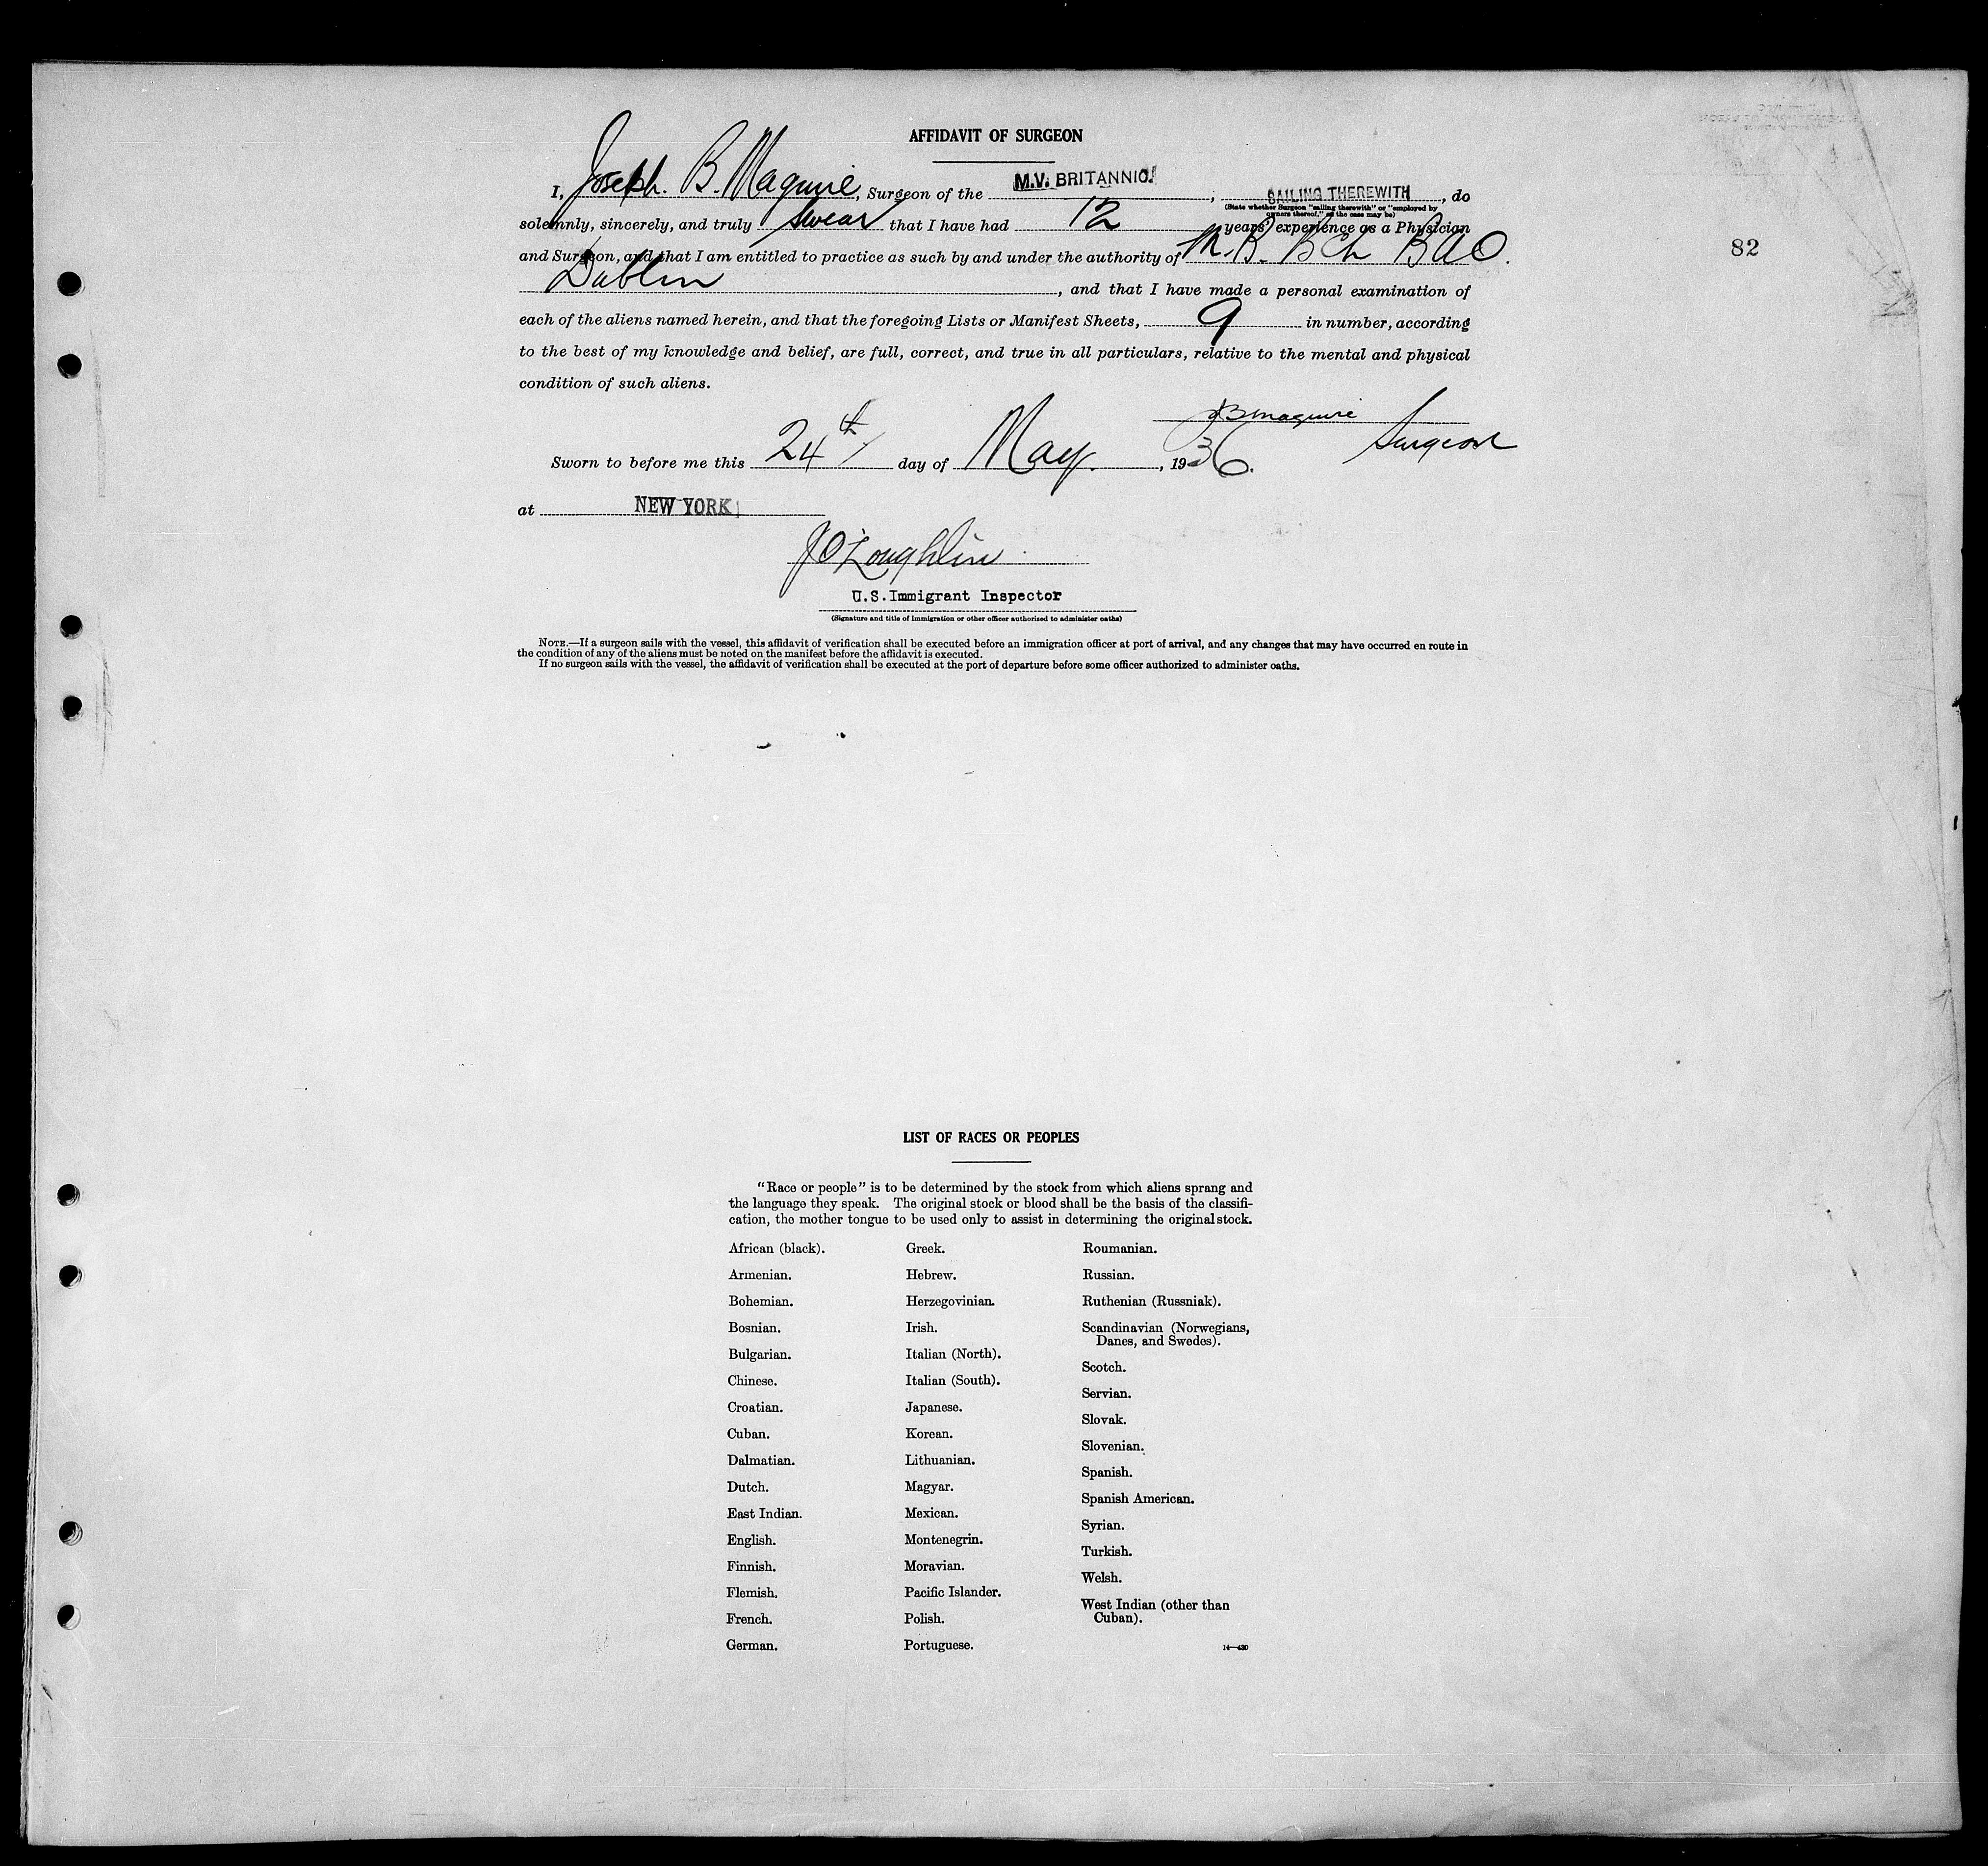 AFFIDAVIT OF SURGEON
I, Joseph. B. Maguire, Surgeon of the M.V. BRITANNIC, SAILING THEREWITH, do
(State whether Surgeon "sailing therewith" or "employed by
owners thereof," as the case may be)
solemnly, sincerely, and truly swear that I have had 12 years' experience as a Physician
and Surgeon, and that I am entitled to practice as such by and under the authority of M.B. BCh BAO.
82
Dublin, and that I have made a personal examination of
each of the aliens named herein, and that the foregoing Lists or Manifest Sheets, 9 in number, according
to the best of my knowledge and belief, are full, correct, and true in all particulars, relative to the mental and physical
condition of such aliens.
JB Maguire
Surgeon
Sworn to before me this 24th day of May., 1936.
at NEW YORK
J O'Loughlin
U.S.Immigrant Inspector
(Signature and title of immigration or other officer authorized to administer oaths)
NOTE.—If a surgeon sails with the vessel, this affidavit of verification shall be executed before an immigration officer at port of arrival, and any changes that may have occurred en route in
the condition of any of the aliens must be noted on the manifest before the affidavit is executed.
If no surgeon sails with the vessel, the affidavit of verification shall be executed at the port of departure before some officer authorized to administer oaths.
LIST OF RACES OR PEOPLES
"Race or people" is to be determined by the stock from which aliens sprang and
the language they speak. The original stock or blood shall be the basis of the classifi-
cation, the mother tongue to be used only to assist in determining the original stock.
African (black).
Armenian.
Bohemian.
Bosnian.
Bulgarian.
Chinese.
Croatian.
Cuban.
Dalmatian.
Dutch.
East Indian.
English.
Finnish.
Flemish.
French.
German.
Greek.
Hebrew.
Herzegovinian.
Irish.
Italian (North).
Italian (South).
Japanese.
Korean.
Lithuanian.
Magyar.
Mexican.
Montenegrin.
Moravian.
Pacific Islander.
Polish.
Portuguese.
Roumanian.
Russian.
Ruthenian (Russniak).
Scandinavian (Norwegians,
Danes, and Swedes).
Scotch.
Servian.
Slovak.
Slovenian.
Spanish.
Spanish American.
Syrian.
Turkish.
Welsh.
West Indian (other than
Cuban).
14—430